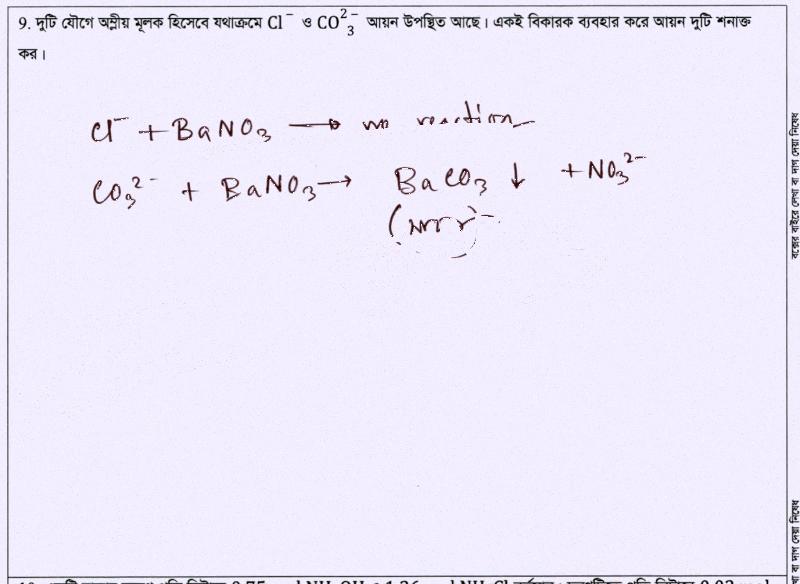 9. দুটি যৌগে অম্লীয় মূলক হিসেবে যথাক্রমে Cl⁻ ও CO₃²⁻ আয়ন উপস্থিত আছে। একই বিকারক ব্যবহার করে আয়ন দুটি শনাক্ত
কর।
Cl⁻ + BaNO₃ ⟶ no reaction
CO₃²⁻ + BaNO₃ → BaCO₃ ↓ + NO₃²⁻
বক্সের বাইরে লেখা বা দাগ দেয়া নিষেধ
বা দাগ দেয়া নিষেধ